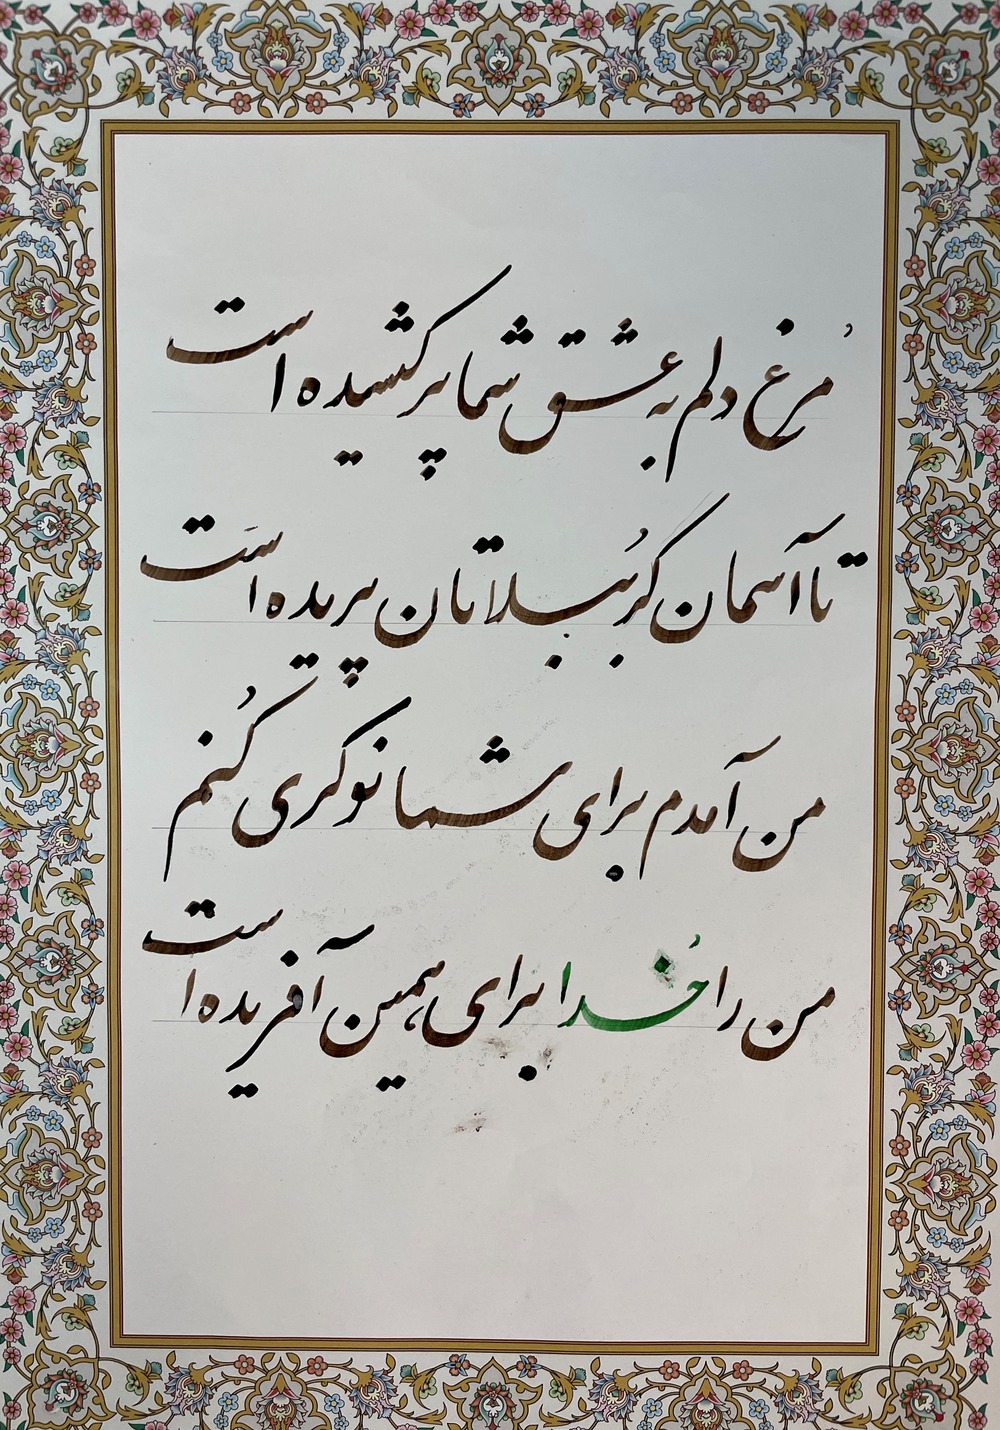 مُرغ دلم به عشق شما پر کشیده است
تا آسمان کربُبلاتان پریده است
من آمدم برای شما نوکری کُنم
من را خُدا برای همین آفریده است